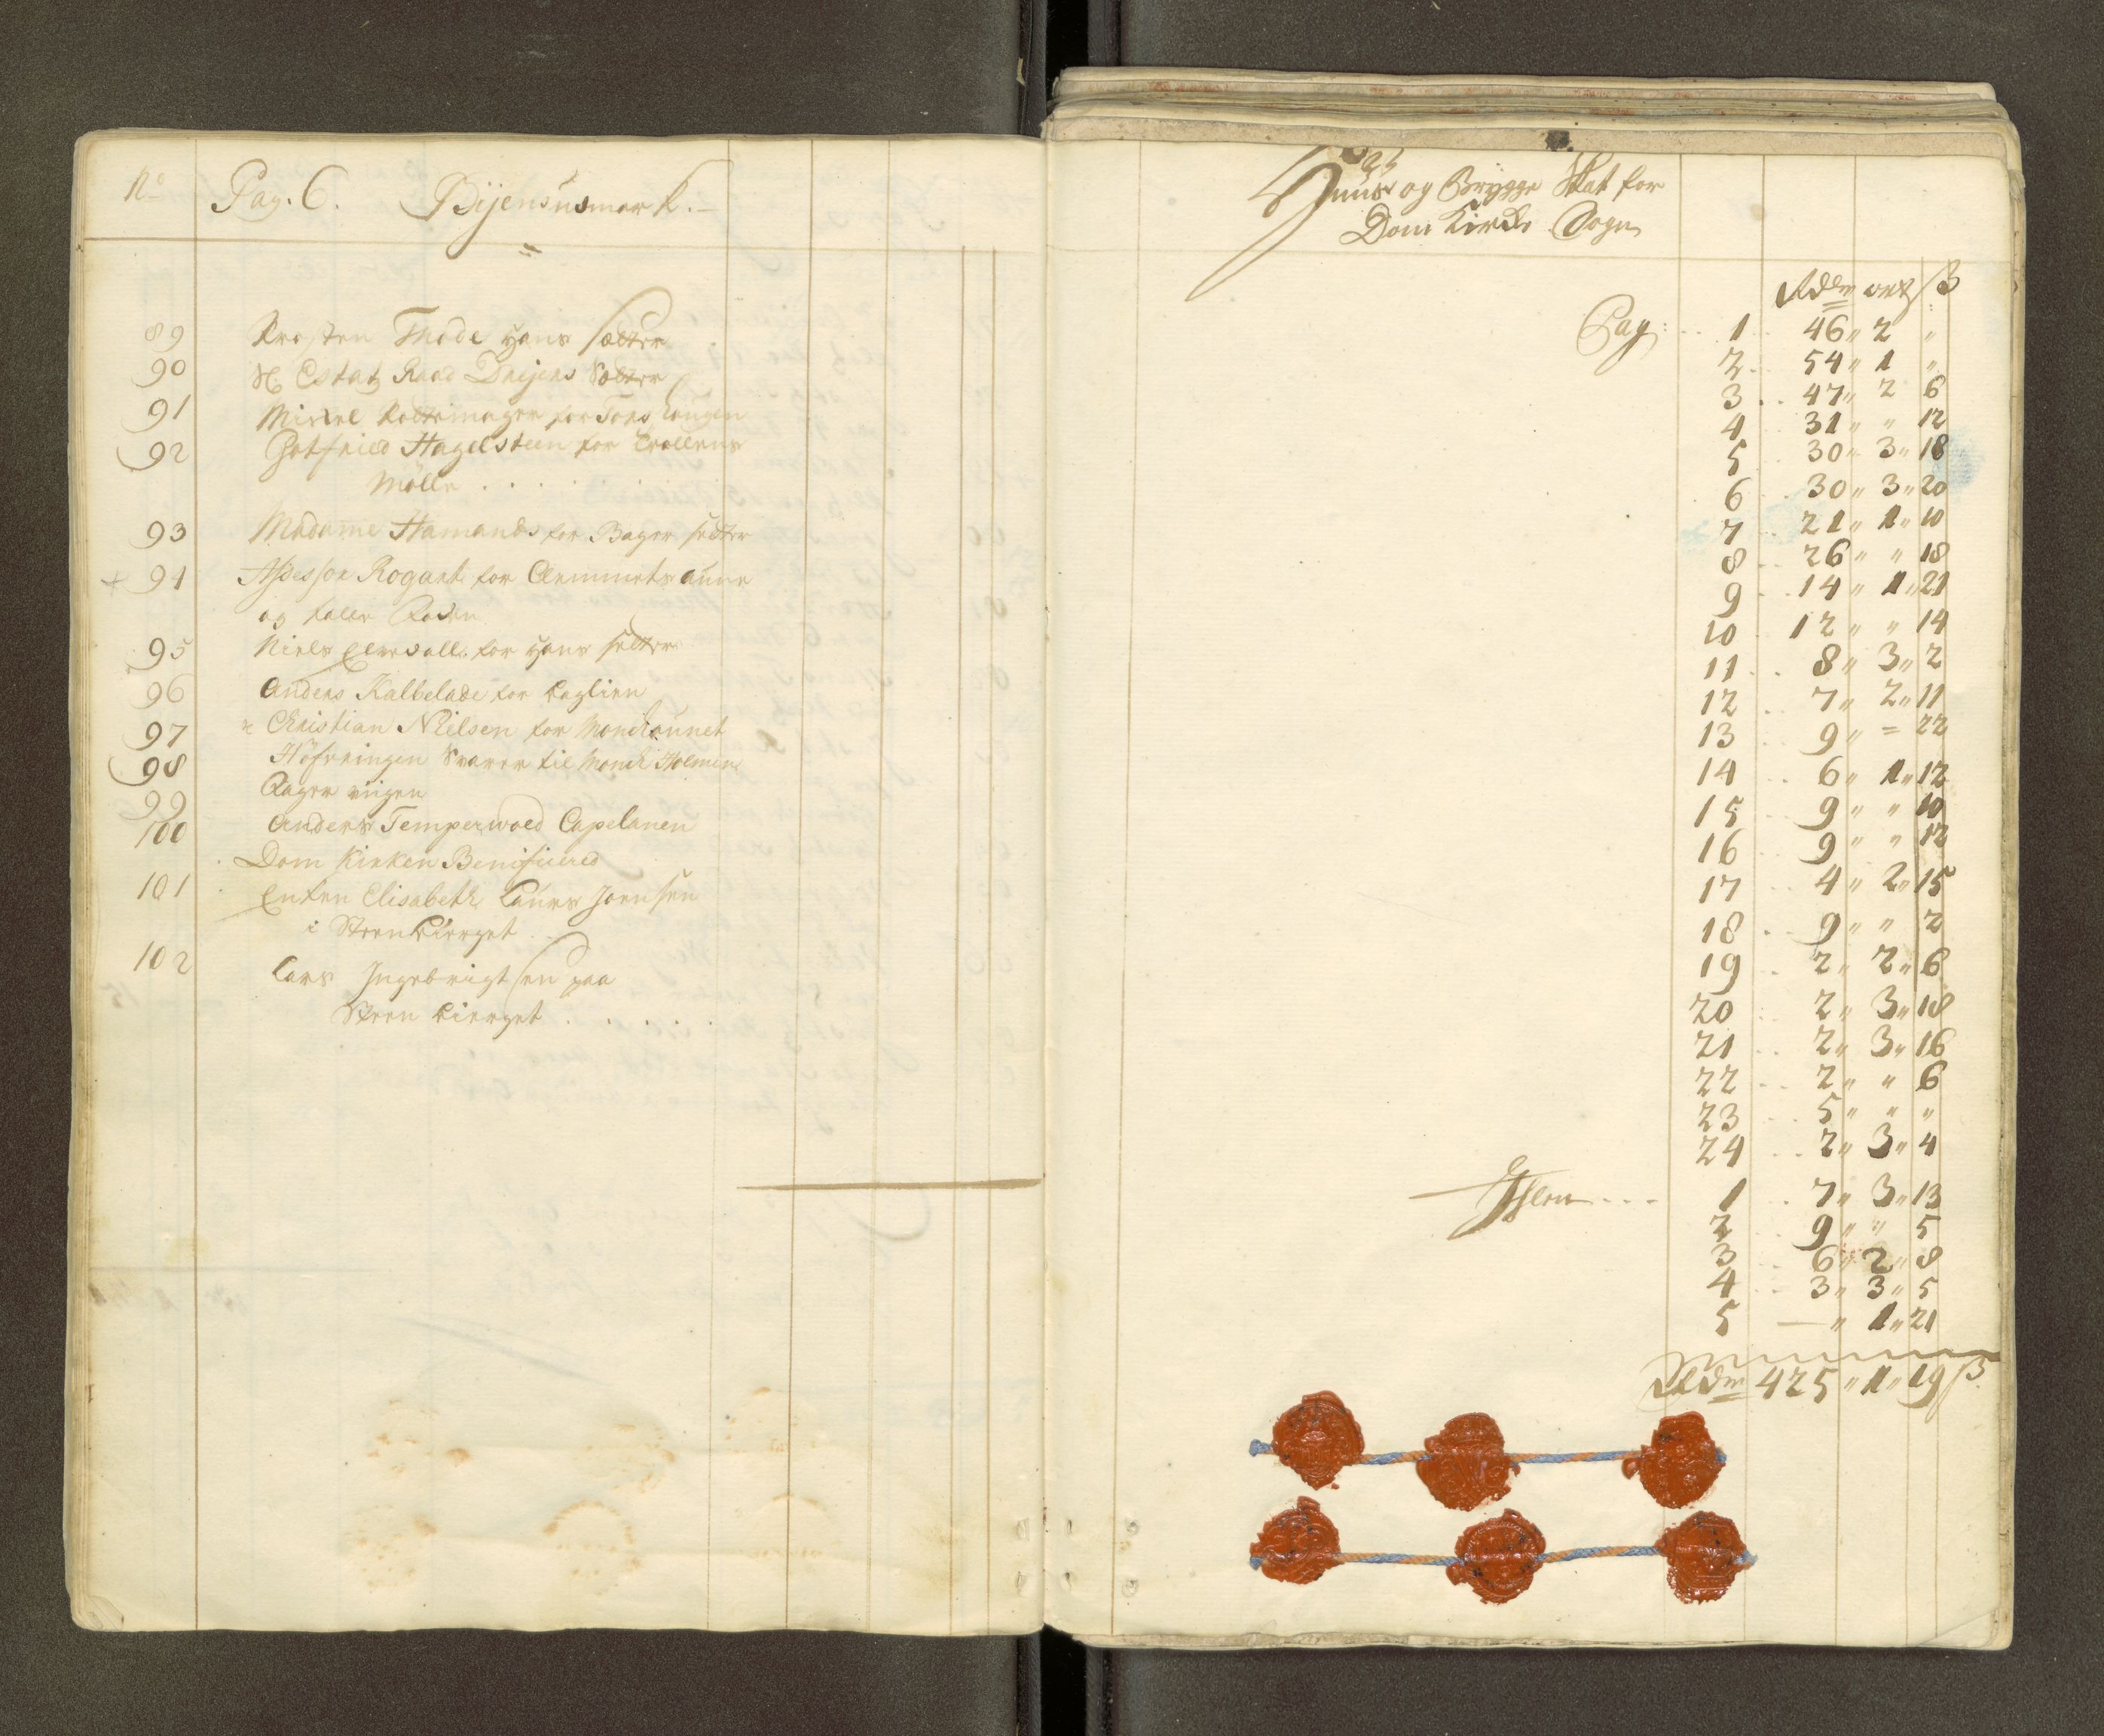 No Pag. 6. Bijensusmark.
89 Kresten Thode Hans sætter
90 H Estatz Raad Dreijers Sætter
91 Mickel Kattemager for
92 Gotfried Hagelsteen for Trollens
Mølle . . . . . .
93 Madame Hamands for Bager setter
94 Assessor Rogart for Clemmets aune
og
95 Niels for Hans setter
96 Anders Kalbelade for Laglien
97 Christian Nielsen for Munckaunet
98 Høfdingen Svarer til Munck Holmen
99 Rager viigen
100 Anders Temperwold Capelanen
Dom Kirken Benificered
101 Enken Elisabeth Laurs Joensen
i Steenbierget
102 Lars Ingebrigtsen paa
Steen bierget . . . . .
Huus og Brygge Skat for
Dom Kircke Sogn
Rdlr ort ß
Pag: 1 46 " 2 "
2 54 " 1 "
3 47 " 2 6
4 31 " " 12
5 30 " 3 " 18
6 30 " 3 " 20
7 21 " 1 " 10
8 26 " " 18
9 14 " 1 " 21
10 12 " " 14
11 8 " 3 " 2
12 7 " 2 " 11
13 9 " = 22
14 6 " 1 " 12
15 9 " " 10
16 9 " " 12
17 4 " 2 " 15
18 9 " " 2
19 2 " 2 " 6
20 2 " 3 " 18
21 2 " 3 " 16
22 2 " " 6
23 5 " " "
24 2 " 3 " 4
Ihlen 1 7 " 3 " 13
2 9 " " 5
3 6 " 2 " 8
4 3 " 3 " 5
5 — " 1 " 21
Rdlr 425 " 1 " 19 ß